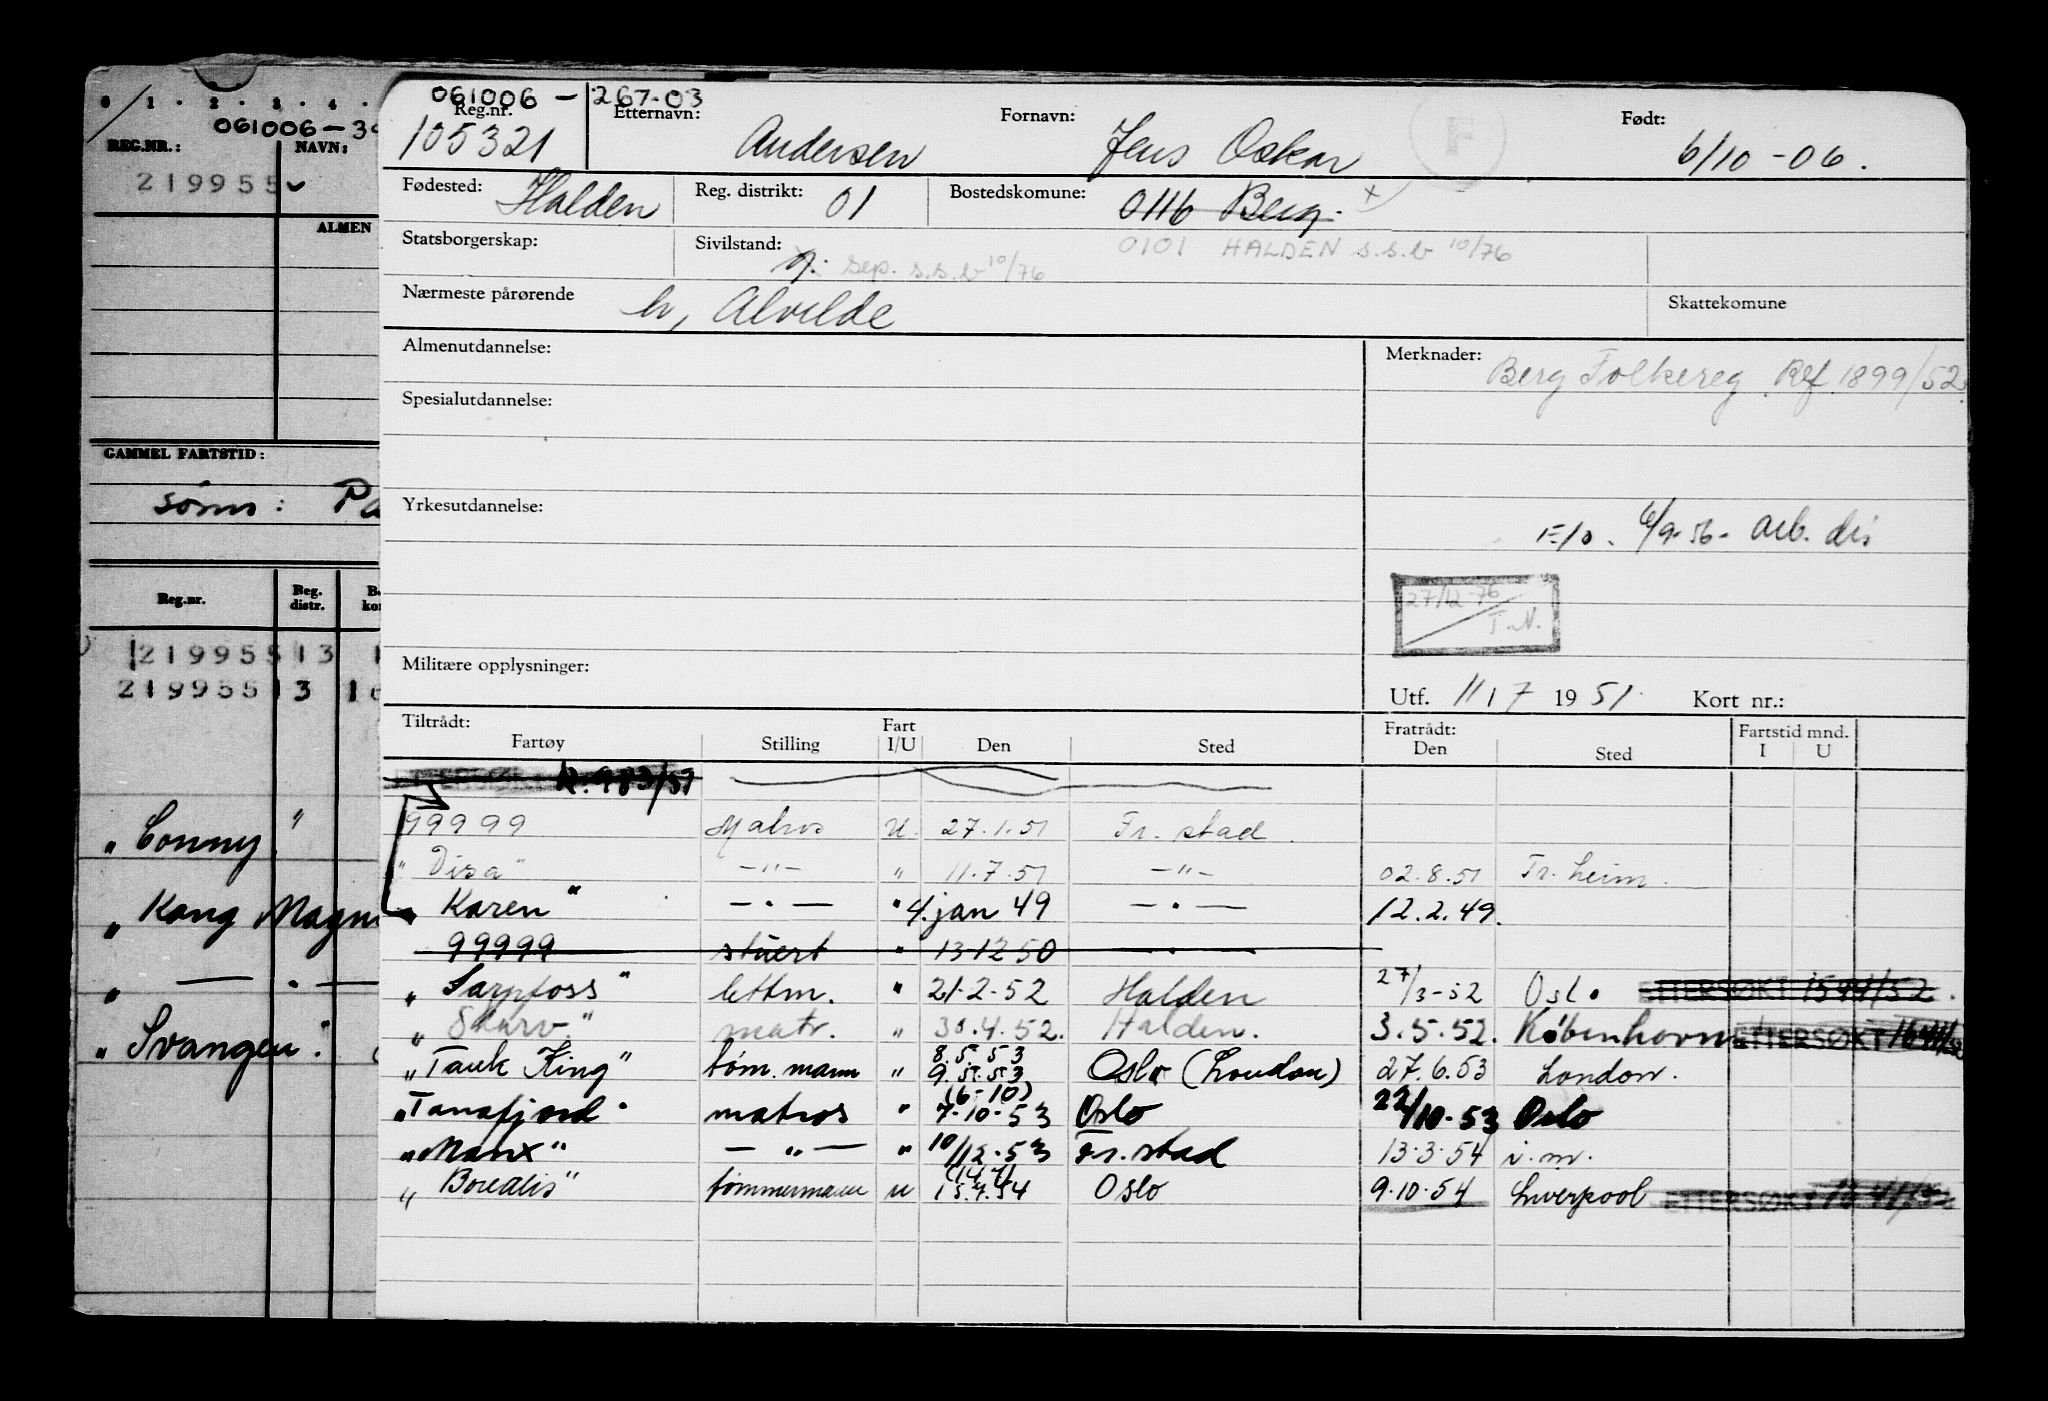 0 1 . 2 . 3 . 4 .
061006-3
REG.NR.: NAVN:
219955
ALMEN
GAMMEL FARTSTID:
sønn: Pa
Reg.nr. Reg. distr.
219955 13 1
219955 13 1
„ Conny "
„ Kong Magn
„ — " —
„ Svangen".
061006 - 267-03
Reg.nr. Etternavn: Fornavn: Født:
105321 Andersen Jens Oskar F 6/10-06.
Fødested: Halden Reg. distrikt: 01 Bostedskomune: 0116 Berg. x
Statsborgerskap: Sivilstand: g. sep. s.s.b 10/76 0101 HALDEN s.s.b 10/76
Nærmeste pårørende h, Alvilde Skattekomune
Almenutdannelse: Merknader: Berg Folkereg. Ref. 1899/52.
Spesialutdannelse:
Yrkesutdannelse:
F/o. 6/9-56- arb. dir
27/12-76
T.N.
Militære opplysninger:
Utf. 11 / 7 1951. Kort nr.:
Tiltrådt: Fart Fratrådt: Fartstid mnd.
Fartøy Stilling I/U Den Sted Den Sted I U
R. 983/51
99999 Matros U. 27.1.51 Fr. stad
" Disa " — " — " 11.7.51 — " — 02.8.51 Tr. heim.
" Karen " — " — " 4. jan 49 — " — 12.2.49.
99999 stuert " 13-12 50 — " —
„ Sarpfoss " lettm. " 21-2-52 Halden 27/3-52 Oslo ETTERSØKT 1594/52.
„ Skarv " matr. " 30.4.52. Halden. 3.5.52. København ETTERSØKT
„ Tank King " tøm. mann " 8.5.53 9.5.53 Oslo (London) 27.6.53 London.
„ Tanafjord " matros " (6-10) 7-10-53 Oslo 22/10-53 Oslo
„ Manx " — " — " 10/12-53 Fr. stad 13.3.54 i.m.
„ Borealis " tømmermann u (14.4) 15.4.54 Oslo 9.10.54 Liverpool ETTERSØKT